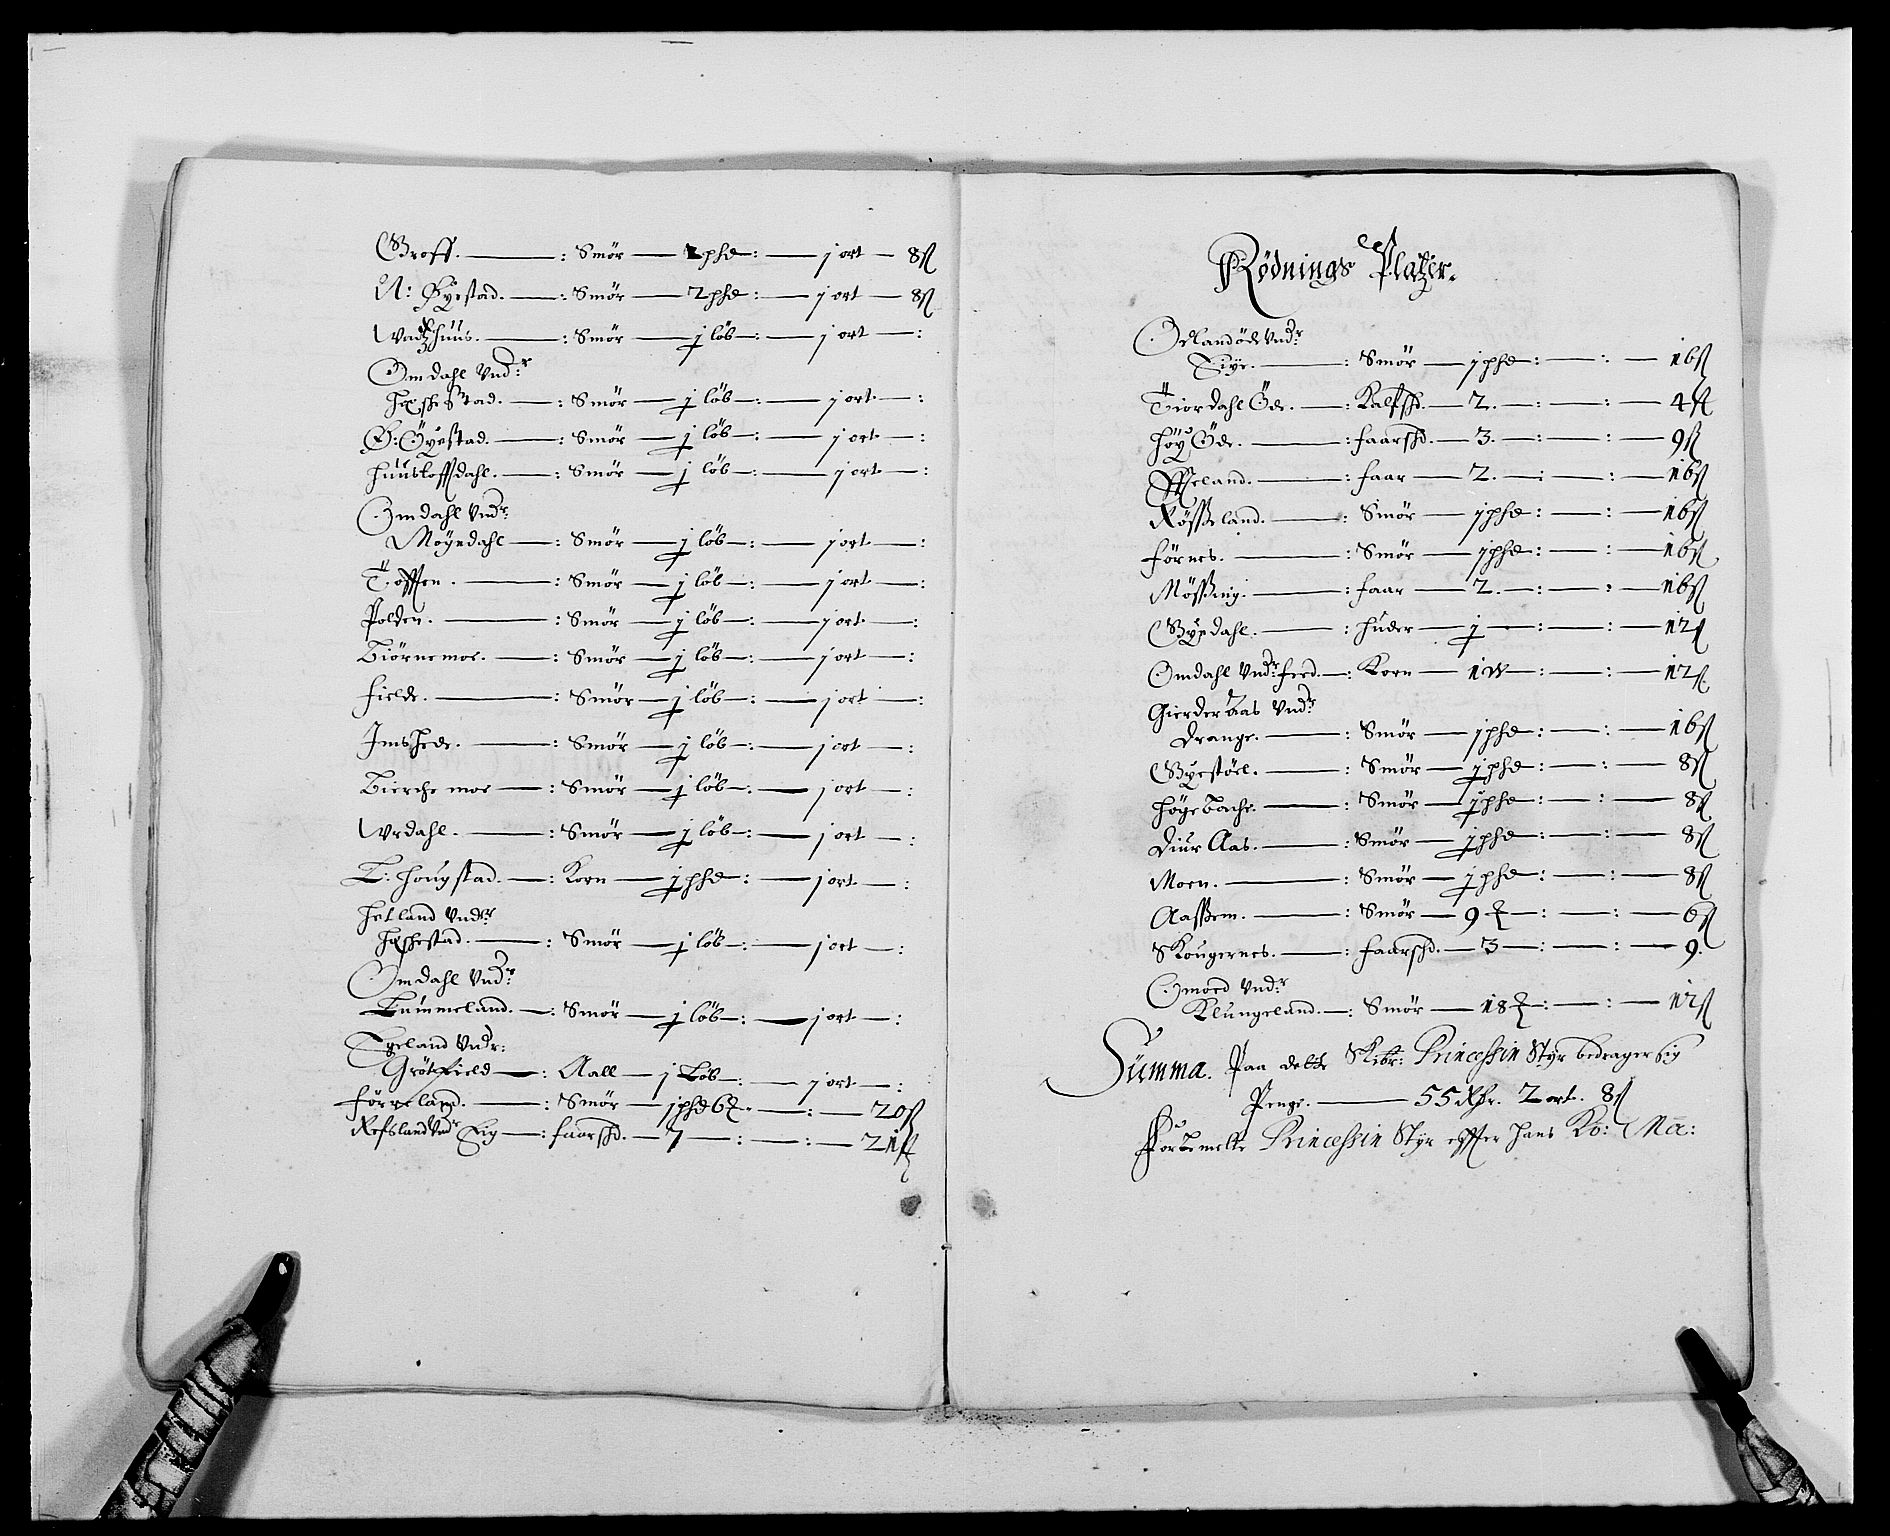 Groff. — : Smör — 2 phd : — j ort — 8 ß
N: Öyestad. — : Smör — 2 phd : — j ort — 8 ß
Wadhuus. — : Smör — j löb : — j ort — :
Omdahl Vndr:
Heshestad. — : Smör — j löb : — j ort — :
Ö: Öyestad. — : Smör — j löb : — j ort — :
Huusloffdahl. — : Smör — j löb : — j ort — :
Omdahl Vndr:
Möyedahl — : Smör — j löb : — j ort — :
Tofften. — : Smör — j löb : — j ort — :
Polden. — : Smör — j löb : — j ort — :
Biörnemoe. — : Smör — j löb : — j ort — :
Fielde. — : Smör — j löb : — j ort — :
Imshede. — : Smör — j löb : — j ort — :
Bierchemoe — : Smör — j löb : — j ort — :
Wrdahl. — : Smör — j löb : — j ort — :
L: Hougstad. — : Korn — j phd : — j ort — :
Hetland Vndr:
Heshestad. — : Smör — j löb : — j ort — :
Omdahl Vndr:
Lummeland. — : Smör — j löb : — j ort — :
Egeland Vndr:
Grötfield — : Aall — j Löb : — j ort — :
Förreland. — : Smör — j phd 6 ℔ : — : — 20 ß
Refsland Vndr Eig — : faarschd. — 7 — : — : — 21 ß
Rödnings Platzer.
Ödlandöde Vndr:
Eiye. — : Smör — j phd : — : — 16 ß
Tiordahl Öde. — : Kalfschd. — 2. — : — : — 4 ß
Höy Öde. — : faarschd. — 3. — : — : — 9 ß
Effteland. — : faar — 2. — : — : — 16 ß
Rösseland. — : Smör — j phd : — : — 16 ß
Förnes. — : Smör — j phd : — : — 16 ß
Mössing. — : faar — 2. — : — : — 16 ß
Byedahl. — : Huder — j — : — : — 12 ß
Omdahl Vndr: feed. — : Korn — 1 W — : — : — 12 ß
Gierder aas Vndr:
Drange. — : Smör — j phd : — : — 16 ß
Byestöel. — : Smör — j phd : — : — 8 ß
Höyebache. — : Smör — j phd : — : — 8 ß
Diur Aas. — : Smör — j phd : — : — 8 ß
Moen. — : Smör — j phd : — : — 8 ß
Aassem. — : Smör — 9 ℔ — : — : — 6 ß
Skougernes. — : faarschd. — 3 — : — : — 9.
Omoed Vndr:
Klungeland. — : Smör — 18 ℔ : — : — 12 ß
Summa. Paa dette Skibr: Princessin Styr bedrager sig
Penge. — 55 Rdr. 2 ort. 8 ß
Forbemelte Princessin Styr effter Hans Ko: Ma: